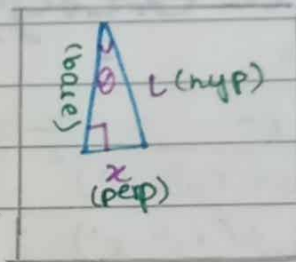 (base)
θ
L (hyp)
x
(perp)